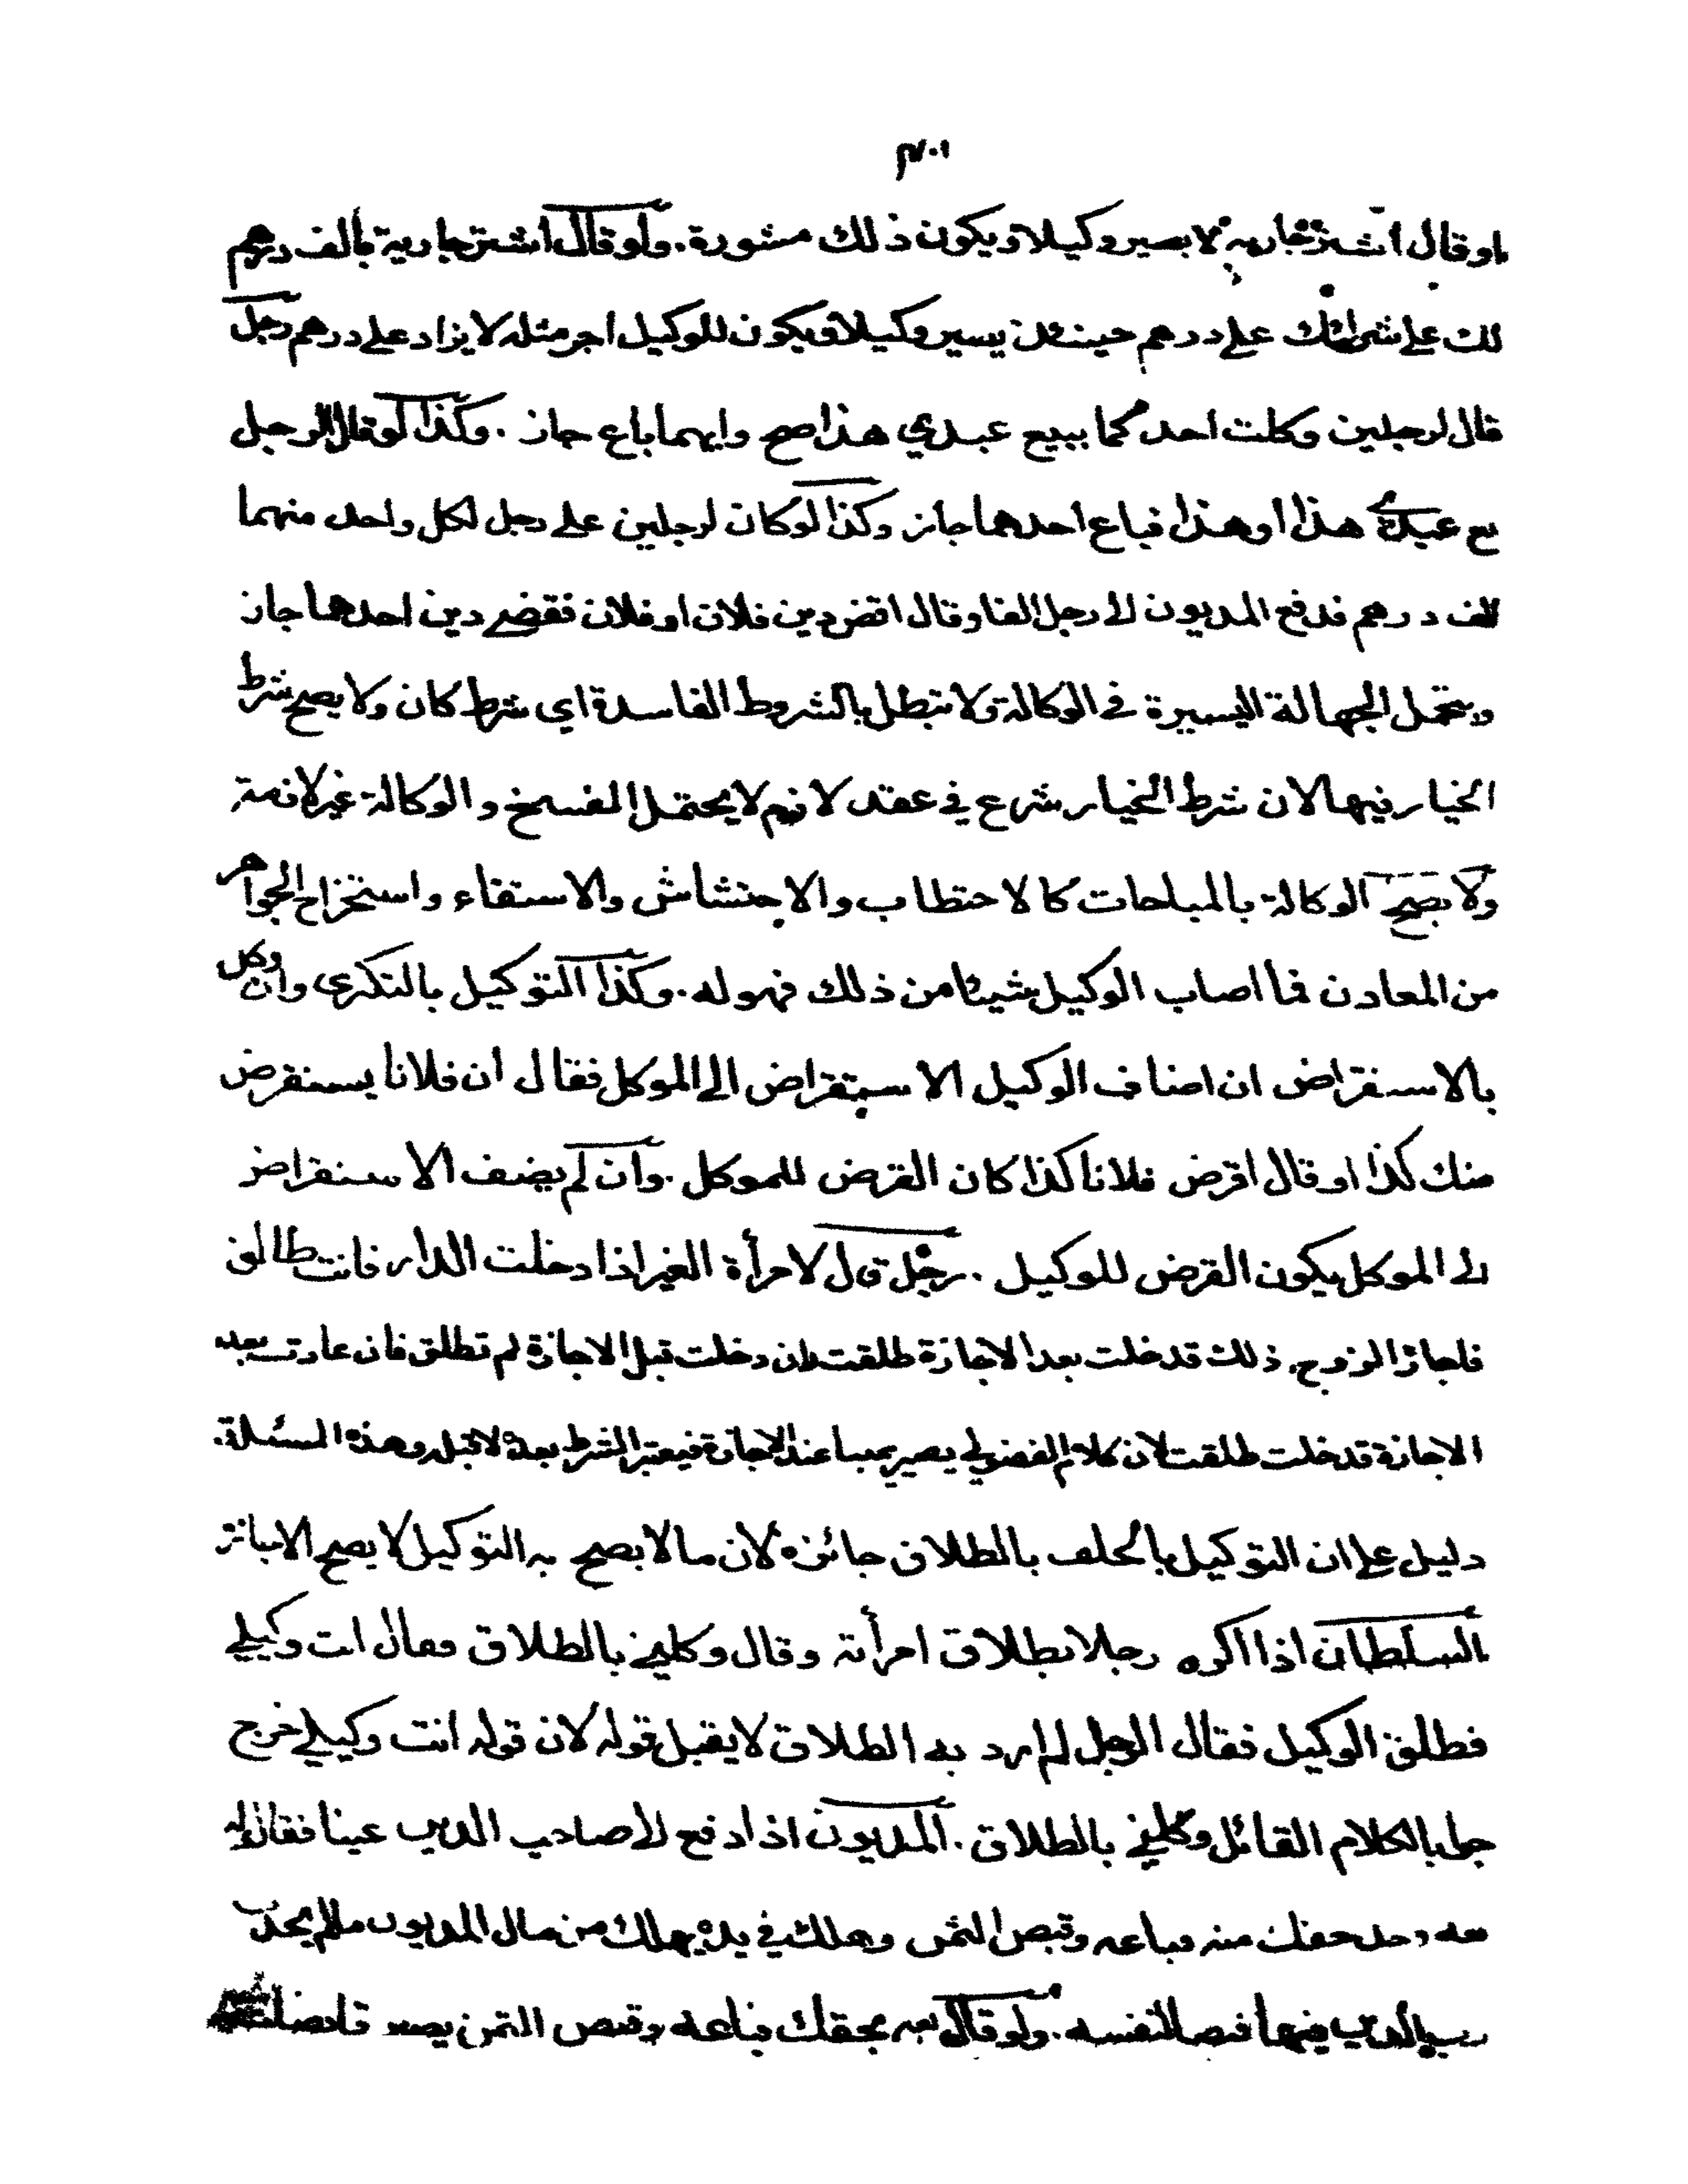 ٣٠١
او قال اشتر جارية لا يصير وكيلا ويكون ذلك مشورة . ولو قال اشتر جارية بالف درهم
لك على شرائك على درهم حينئذ يسير وكيلا فيكون للوكيل اجر مثله لا يزاد على درهم رجل
قال لرجلين وكلت احدكما ببيع عبدي هذا صح وايهما باع جاز . وكذا لو قال لرجل
بع عبدي هذا او هذا فباع احدهما جاز وكذا لو كان لرجلين على رجل لكل واحد منهما
الف درهم فدفع المديون الى رجل الفا وقال اقض دين فلان او فلان فقضى دين احدهما جاز
وتتحمل الجهالة اليسيرة في الوكالة ولا تبطل بالشروط الفاسدة اي شرط كان ولا يصح شرط
الخيار فيها لان شرط الخيار شرع في عقد لازم لا يحتمل الفسخ والوكالة غير لازمة
ولا يصح الوكالة بالمباحات كالاحتطاب والاحتشاش والاستقاء واستخراج الجواهر
من المعادن فما اصاب الوكيل شيئا من ذلك فهو له . وكذا التوكيل بالتكرى وان وكل
بالاستقراض ان اضاف الوكيل الاستقراض الى الموكل فقال ان فلانا يستقرض
منك كذا او قال اقرض فلانا كذا كان القرض للموكل . وان لم يضف الاستقراض
الى الموكل يكون القرض للوكيل . رجل قال لامرأة الغير اذا دخلت الدار فانت طالق
فاجاز الزوج ذلك فدخلت بعد الاجازة طلقت وان دخلت قبل الاجازة لم تطلق فان عادت بعد
الاجازة فدخلت طلقت لان كلام الفضولي يصير يمينا عند الاجازة فيعتبر الشرط بعده لا قبله وهذه المسئلة .
دليل على ان التوكيل بالحلف بالطلاق جائزه لان ما لا يصح به التوكيل لا يصح
السلطان اذا اكره رجلا بطلاق امرأته وقال وكلني بالطلاق فقال انت وكيلي
فطلق الوكيل فقال الرجل لم ارد به الطلاق لا يقبل قوله لان قوله انت وكيلي خرج
جوابا لكلام القائل وكلني بالطلاق . المديون اذا دفع الى صاحب الدين عينا فقال له
بعه وخذ حقك منه فباعه وقبض الثمن وهلك في يده يهلك من مال المديون ما لم يحدث
رب الدين فيها قبضا لنفسه . ولو قال بعه بحقك فباعه وقبض الثمن يصير قابضا